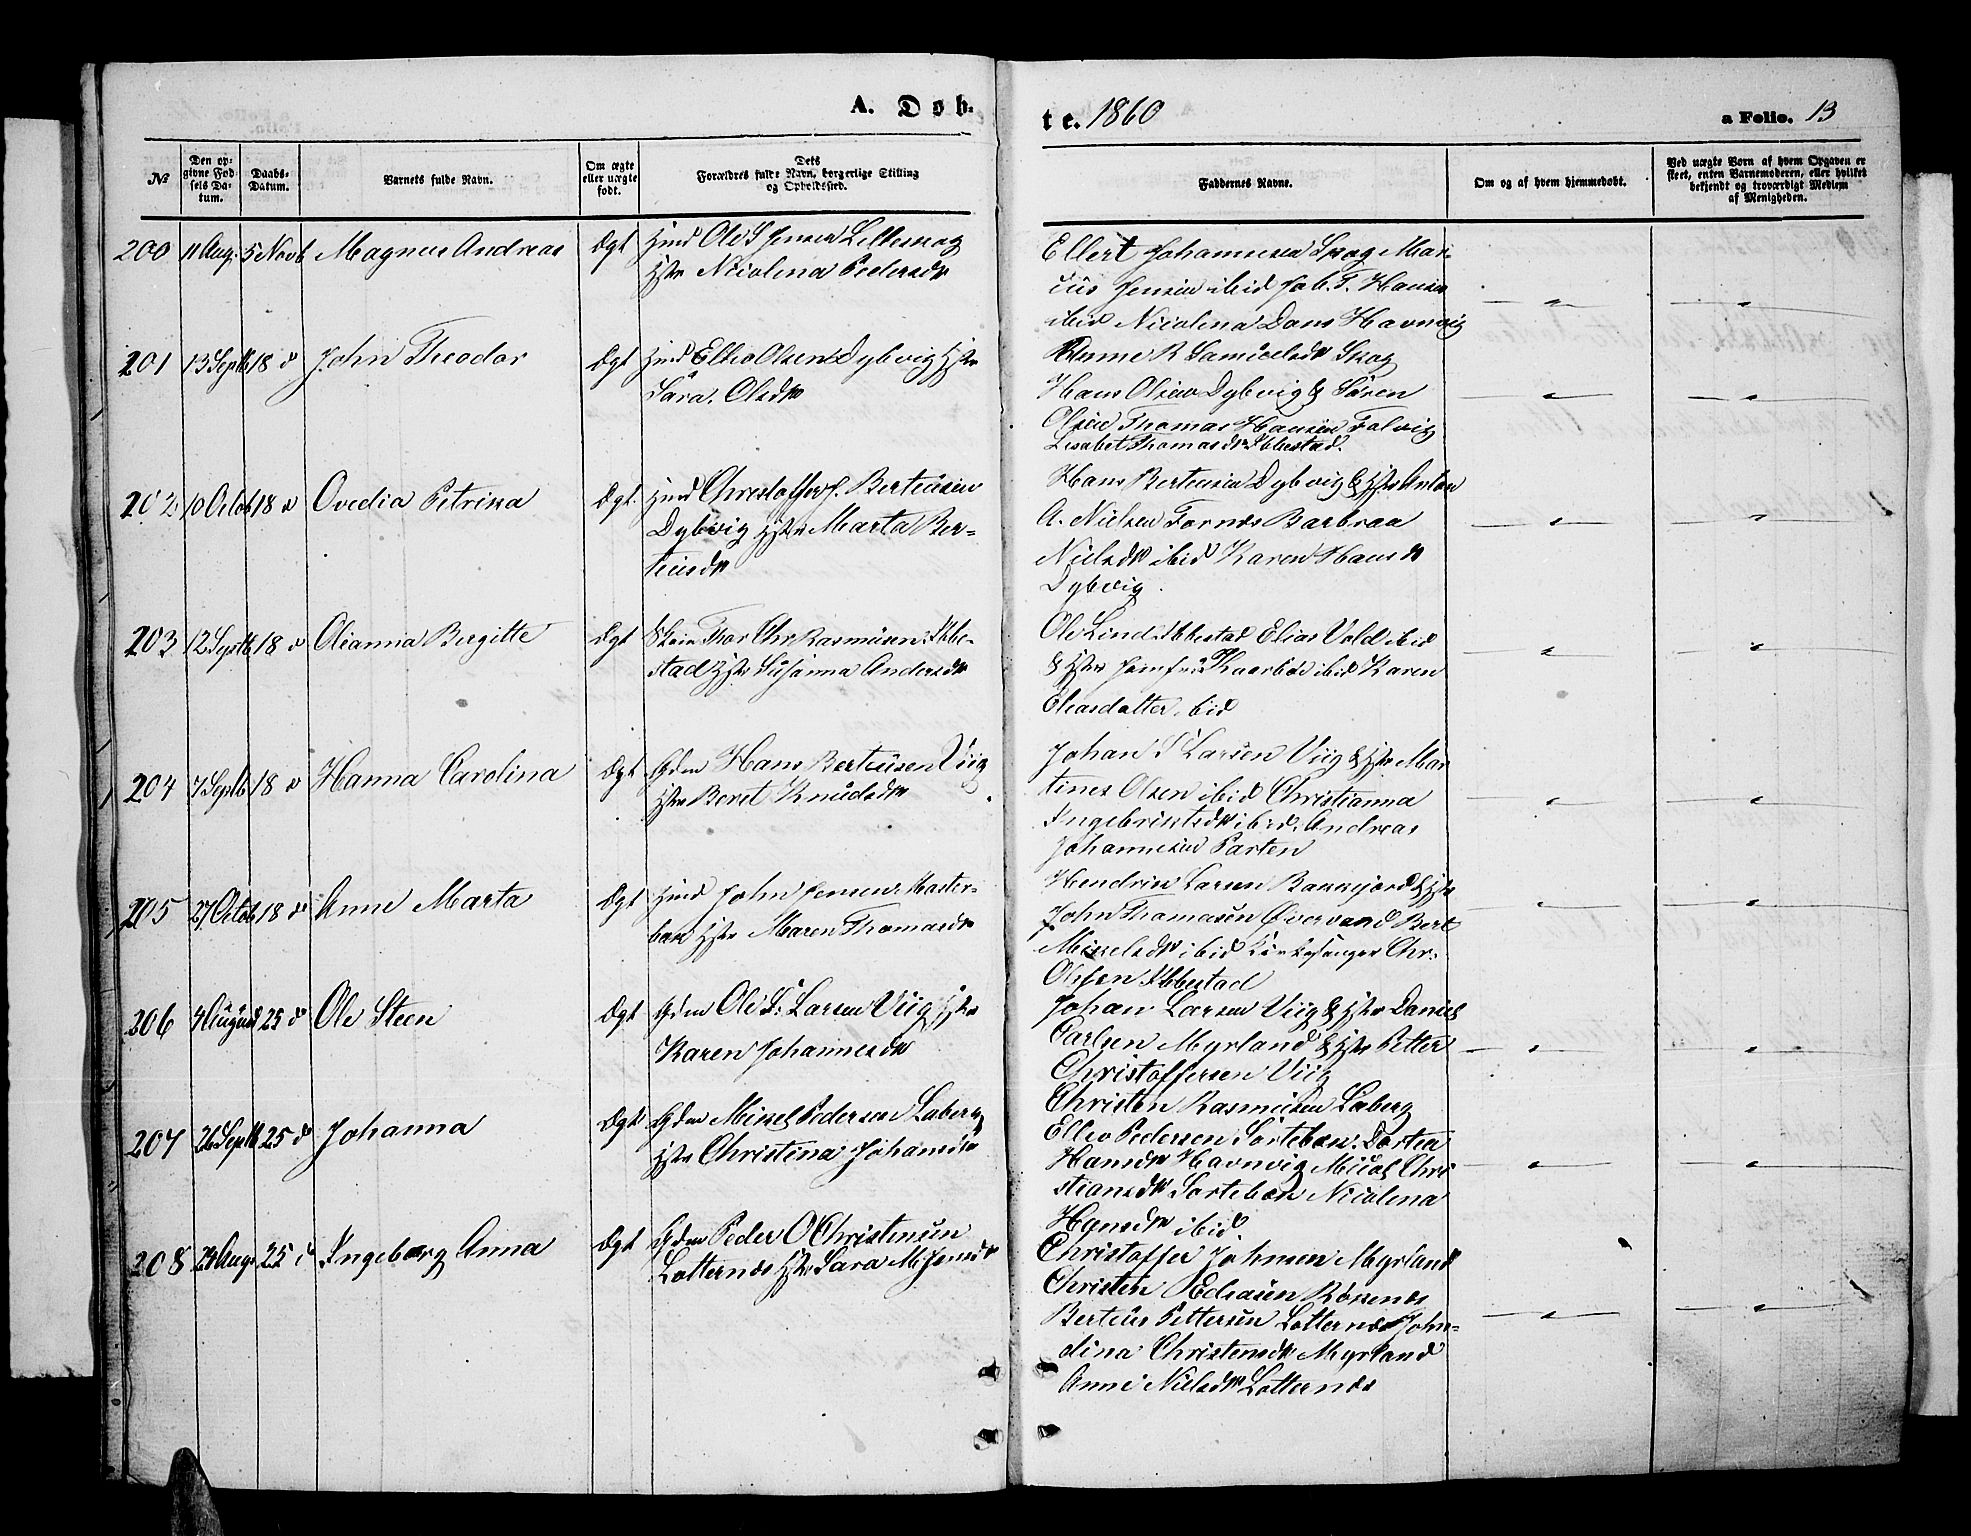 A. Døb-
te. 1860
a Folio. 13
№
Den op-
givne Fød-
sels Da-
tum.
Daabs-
Datum.
Barnets fulde Navn.
Om ægte
eller uægte
født.
Dets
Forældres fulde Navn, borgerlige Stilling
og Opholdssted.
Faddernes Navne.
Om og af hvem hjemmedøbt.
Ved uægte Børn af hvem Opgaven er
skeet, enten Barnemoderen, eller hvilket
bekjendt og troværdigt Medlem
af Menigheden.
200 11 Aug. 5 Novb Magnus Andreas Ægt Hmd Ole Jensen
Hstr Nicolina Pedersdr
Ellert Johannesen Skog Mar-
cius Jensen ibid Joh. T. Hansen
ibid Nicolina Dans Havnvig
Anne R Samuelsdr Skog
201 13 Septb 18 d John Theodor Ægt Hmd Ellev Olsen Dybvig Hstr
Sara Olsdr
Hans Olsen Dybvig & Søren
Olsen Thomas Hansen
Lisabet Thomasdr Ibbestad.
202 10 Octob 18 d Ovedia Petrina Ægt. Hmd Christoffer J. Berteusen
Dybvig Hstr Marta Ber-
teusdr
Hans Berteusen Dybvig & Hstr Anton
A. Nielsen Fornæs Barbraa
Nielsdr ibid Karen Hansdr
Dybvig.
203 12 Septb 18 d Olianna Bergitte Ægt Chr Rasmusen Ibbe-
stad Hstr Susanna Andersdr
Ole Lind Ibbestad Elias Vold ibid
& Hstr Jomfru Kaarbøe ibid Karen
Eliasdatter ibid
204 7 Septb 18 d Hanna Carolina Ægt Gdm Hans Berteusen Viig
Hstr Beret Knudsdr
Johan Larsen Viig & Hstr Mar-
tines Olsen ibid Christianna
Ingebrigtsdr ibid. Andreas
Johannesen Parten
205 27 Octob 18 d Anne Marta Ægt Hmd John Jensen
Hstr Maren Thomasdr
Hendrik Larsen & Hstr
John Thomasen Øvervand Berit
Mikkelsdr ibid Kirkesanger Chr.
Olsen Ibbestad
206 4 August 25 d Ole Steen Ægt Gdm Ole L: Larsen Viig Hstr
Karen Johannesdr
Johan Larsen Viig & Hstr Daniel
Carlsen Myrland & Hstr Petter
Christoffersen Viig
207 26 Septb 25 d Johanna Ægt Gdm Mikkel Pedersen Laberg
Hstr Christina Johansdr
Christen Rasmusen Laberg
Ellev Pedersen Sørtebøen. Dortea
Hansdr Havnvig Chri-
stiansdr Sørtebøen Nicolina
Hansdr ibid
208 23 Aug. 25 d Ingeborg Anna Ægt Gdm Peder O Christensen
Lotternæs Hstr Sara M Jensdr
Christoffer Johnsen Myrland
Christen Røkenæs
Berteus Pettersen Lotternæs John-
dina Christensdr Myrland
Anne Nielsdr Lotternæs